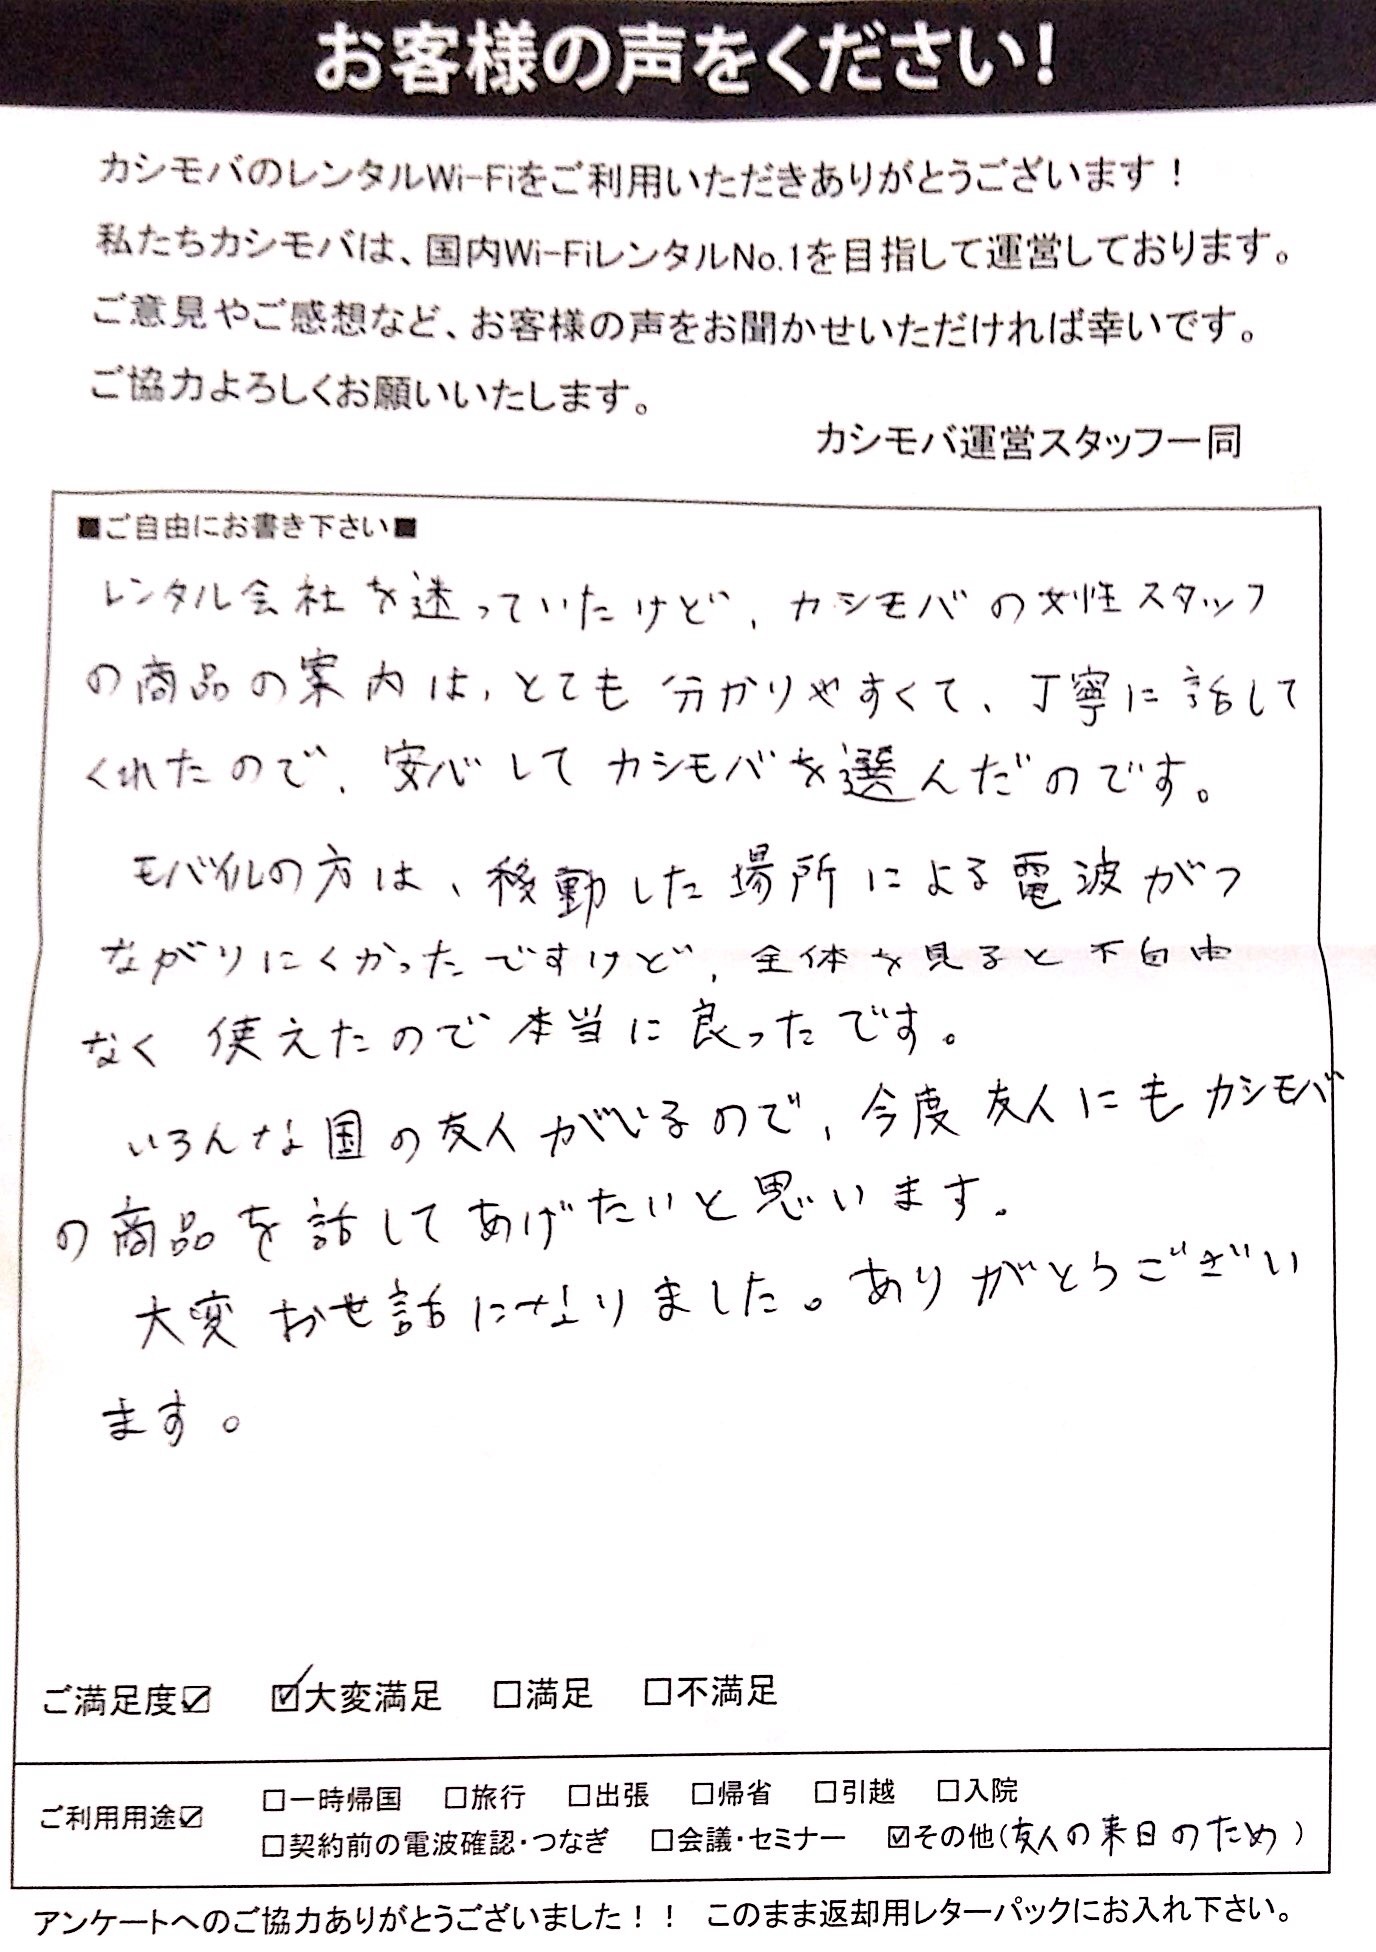 お客様の声をください!
カシモバのレンタルWi-Fiをご利用いただきありがとうございます！
私たちカシモバは、国内Wi-FiレンタルNo.1を目指して運営しております。
ご意見やご感想など、お客様の声をお聞かせいただければ幸いです。
ご協力よろしくお願いいたします。
カシモバ運営スタッフ一同
■ご自由にお書き下さい■
レンタル会社を迷っていたけど、カシモバの女性スタッフ
の商品の案内は、とても分かりやすくて、丁寧に話して
くれたので、安心してカシモバを選んだのです。
モバイルの方は、移動した場所による電波がつ
ながりにくかったですけど、全体を見ると不自由
なく使えたので本当に良ったです。
いろんな国の友人がいるので、今度友人にもカシモバ
の商品を話してあげたいと思います。
大変お世話になりました。ありがとうござい
ます。
ご満足度☑ ☑大変満足 □満足 □不満足
ご利用用途☑ □一時帰国 □旅行 □出張 □帰省 □引越 □入院
□契約前の電波確認・つなぎ □会議・セミナー ☑その他(友人の来日のため)
アンケートへのご協力ありがとうございました！！ このまま返却用レターパックにお入れ下さい。